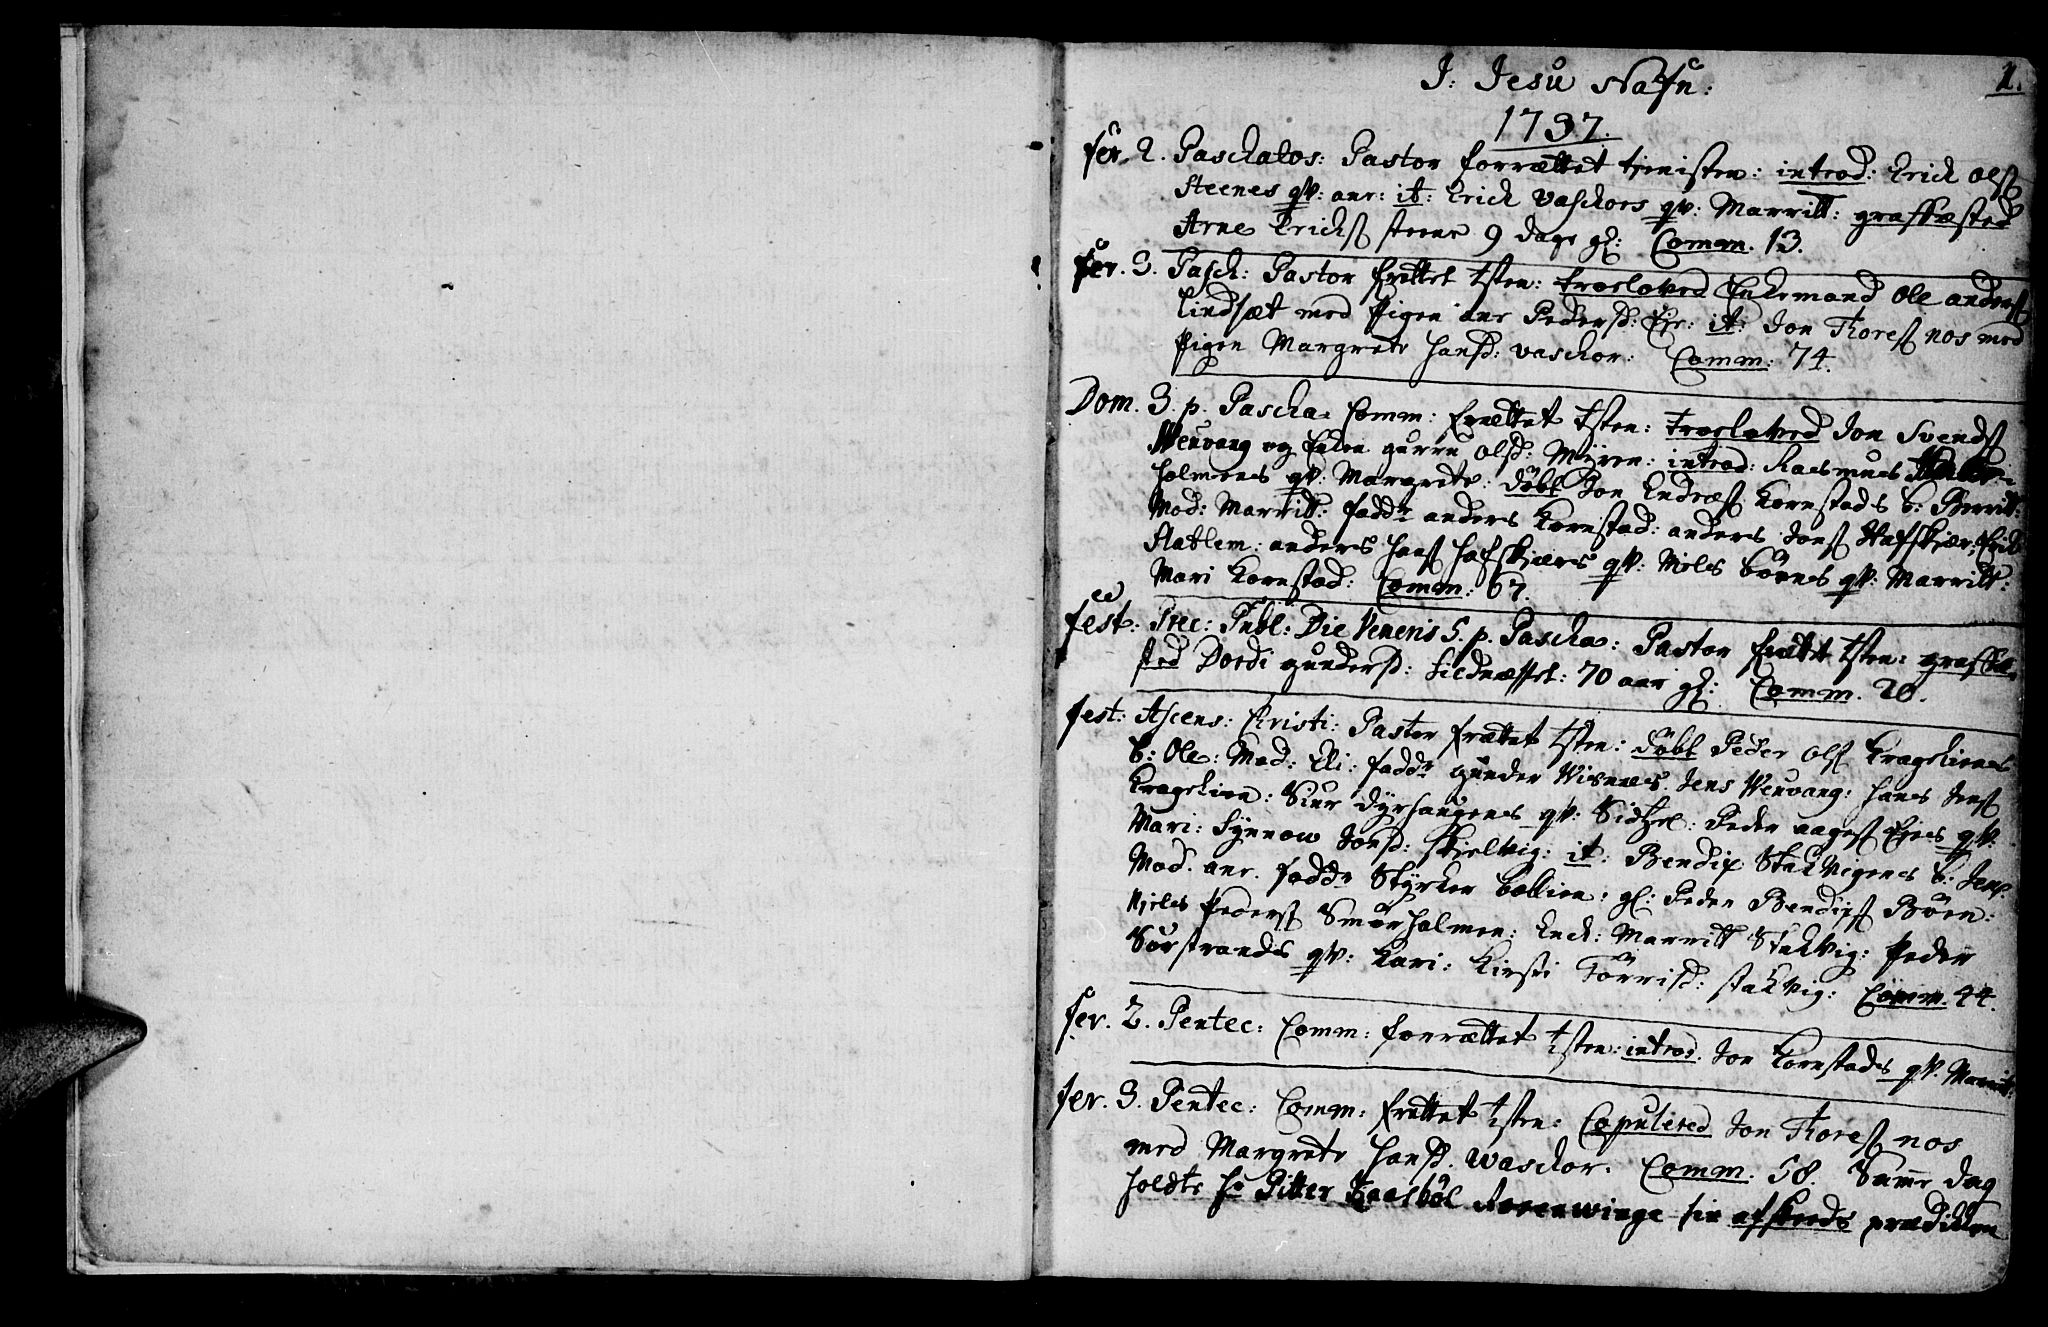 J: Jesu Nafn:
1.
1737.
fer. 2. Paschatos: Pastor forrættet tienisten: introd: Erich Olß
Steenes qv: anr: it: Erich Vaschors qv: Marritt: graffæsted
Arne Erichß steene 9 dage gl: Comm. 13.
fer. 3. Pasch: Pastor frettet tsten: troeloved Enkemand Ole anderß
Lindsæt med Pigen anr Pedersd: Eye: it: Jon Thoreß nos med
Pigen Margrete Hansd: Vaschor: Comm: 74.
Dom. 3. p. Pascha. Comm: frættet tsten: troeloved Jon Svendß
Wenvang og Enken gurru Olsd: Myren: introd: Rasmus
Holmenes qv: Margrete: døbt Jon Endreß Kornstads b: Berrit:
Mod: Marritt: fadd: anders Kornstad: anders Jonß Hafskjær: Erich
Slatlem: anders Hanß Hafskjærs qv: Niels Böenes qv: Marritt:
Mari Kornstad: Comm: 67.
fest: Prec: Publ: Die Veneris 5. p. Pascha: Pastor frættet tsten: graffæ-
sted Dordi gundersd: Sildnæsset: 70 aar gl: Comm. 20.
fest: Ascens: Christi: Pastor frættet tsten: døbt Peder Olß Kragelienes
b: Ole: Mod: Eli: fadd: gunder Wisnæs. Jens Wenvang: Hans Jenß
Kragelien: Siur Dyrhaugenes qv: Sidtzel: Peder aageß Eyes qv:
Mari: Synnow Jonsd: Skjelvig: it: Bendix Stakvigenes b: Jens.
Mod. anr. fadd: Styrker Bollien: gl: Peder Bendixß Böen:
Njels Pederß Smørholmen: Enck: Marritt Stakvig: Peder
Sørstrands qv: Kari: Kirsti Törrisd: Stakvig: Comm. 44.
fer. 2. Pentec: Comm: forrættet tsten: introd. Jon Kornstads qv. Marritt:
fer. 3. Pentec: Comm: frættet tsten: Copulered Jon Thoreß nos
med Margrete Hansd. Waschor. Comm. 58. Samme dag
holdte hr Pitter Rosenwinge sin afskeeds prædicken